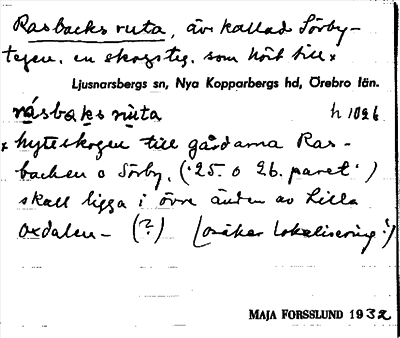 Rasbacks ruta, äv. kallad Sörby-
tegen, en skogsteg, som hört till x
Ljusnarsbergs sn, Nya Kopparbergs hd, Örebro län.
råsbaks ruta h 1026
x hytteskogen till gårdarna Ras-
backen o Sörby, ("25. o 26. paret")
skall ligga i övre änden av Lilla
Oxdalen - (?) (osäker lokalisering!)
MAJA FORSSLUND 1932